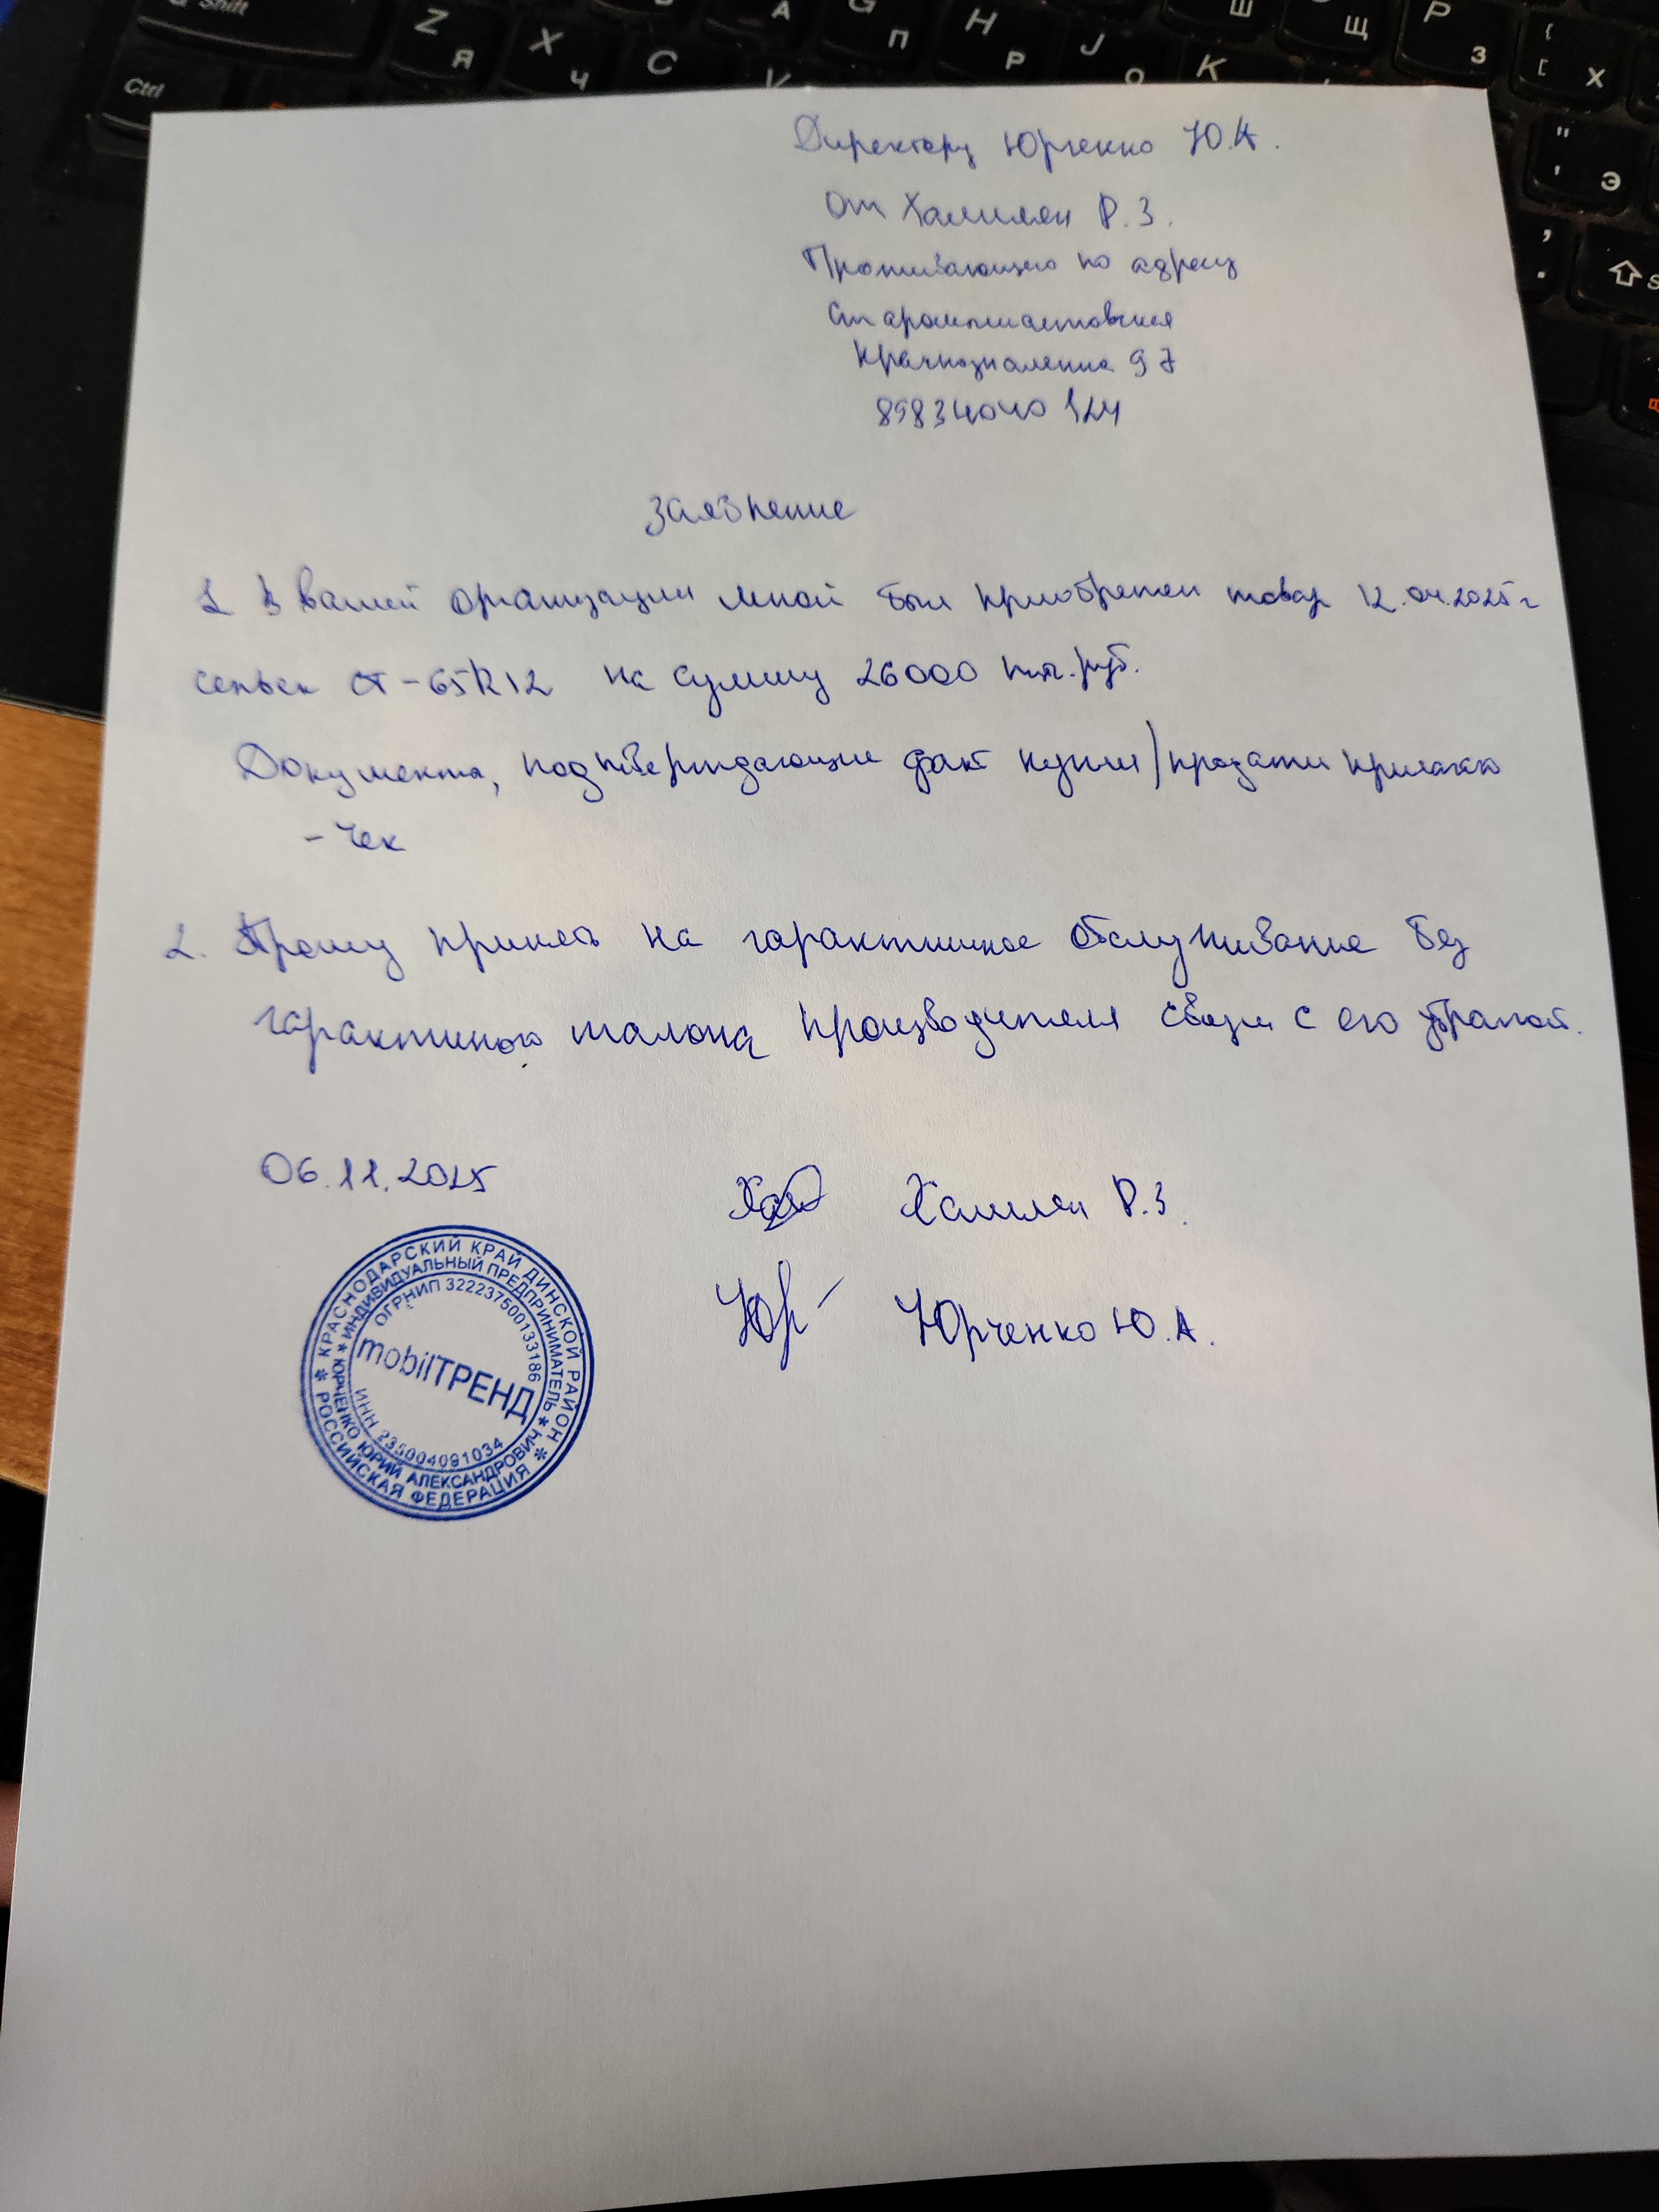 Директору Юрченко Ю.А.
От Халилян Р.З.
Проживающего по адресу
Старомышастовская
Краснознаменная 97
89834040124
Заявление
1 В вашей организации мной был приобретен товар 12.04.2025 г
CT-65R12 на сумму 26000 т.руб.
Документы, подтверждающие факт купли/продажи прилагаю
- Чек
2. Прошу принять на гарантийное обслуживание без
гарантийного талона производителя связи с его утратой.
06.11.2025
Халилян Р.З.
Юр Юрченко Ю.А.
КРАСНОДАРСКИЙ КРАЙ ДИНСКОЙ РАЙОН * РОССИЙСКАЯ ФЕДЕРАЦИЯ *
ИНДИВИДУАЛЬНЫЙ ПРЕДПРИНИМАТЕЛЬ * ЮРЧЕНКО ЮРИЙ АЛЕКСАНДРОВИЧ *
ОГРНИП 322237500133186
mobilТРЕНД
ИНН 235004091034